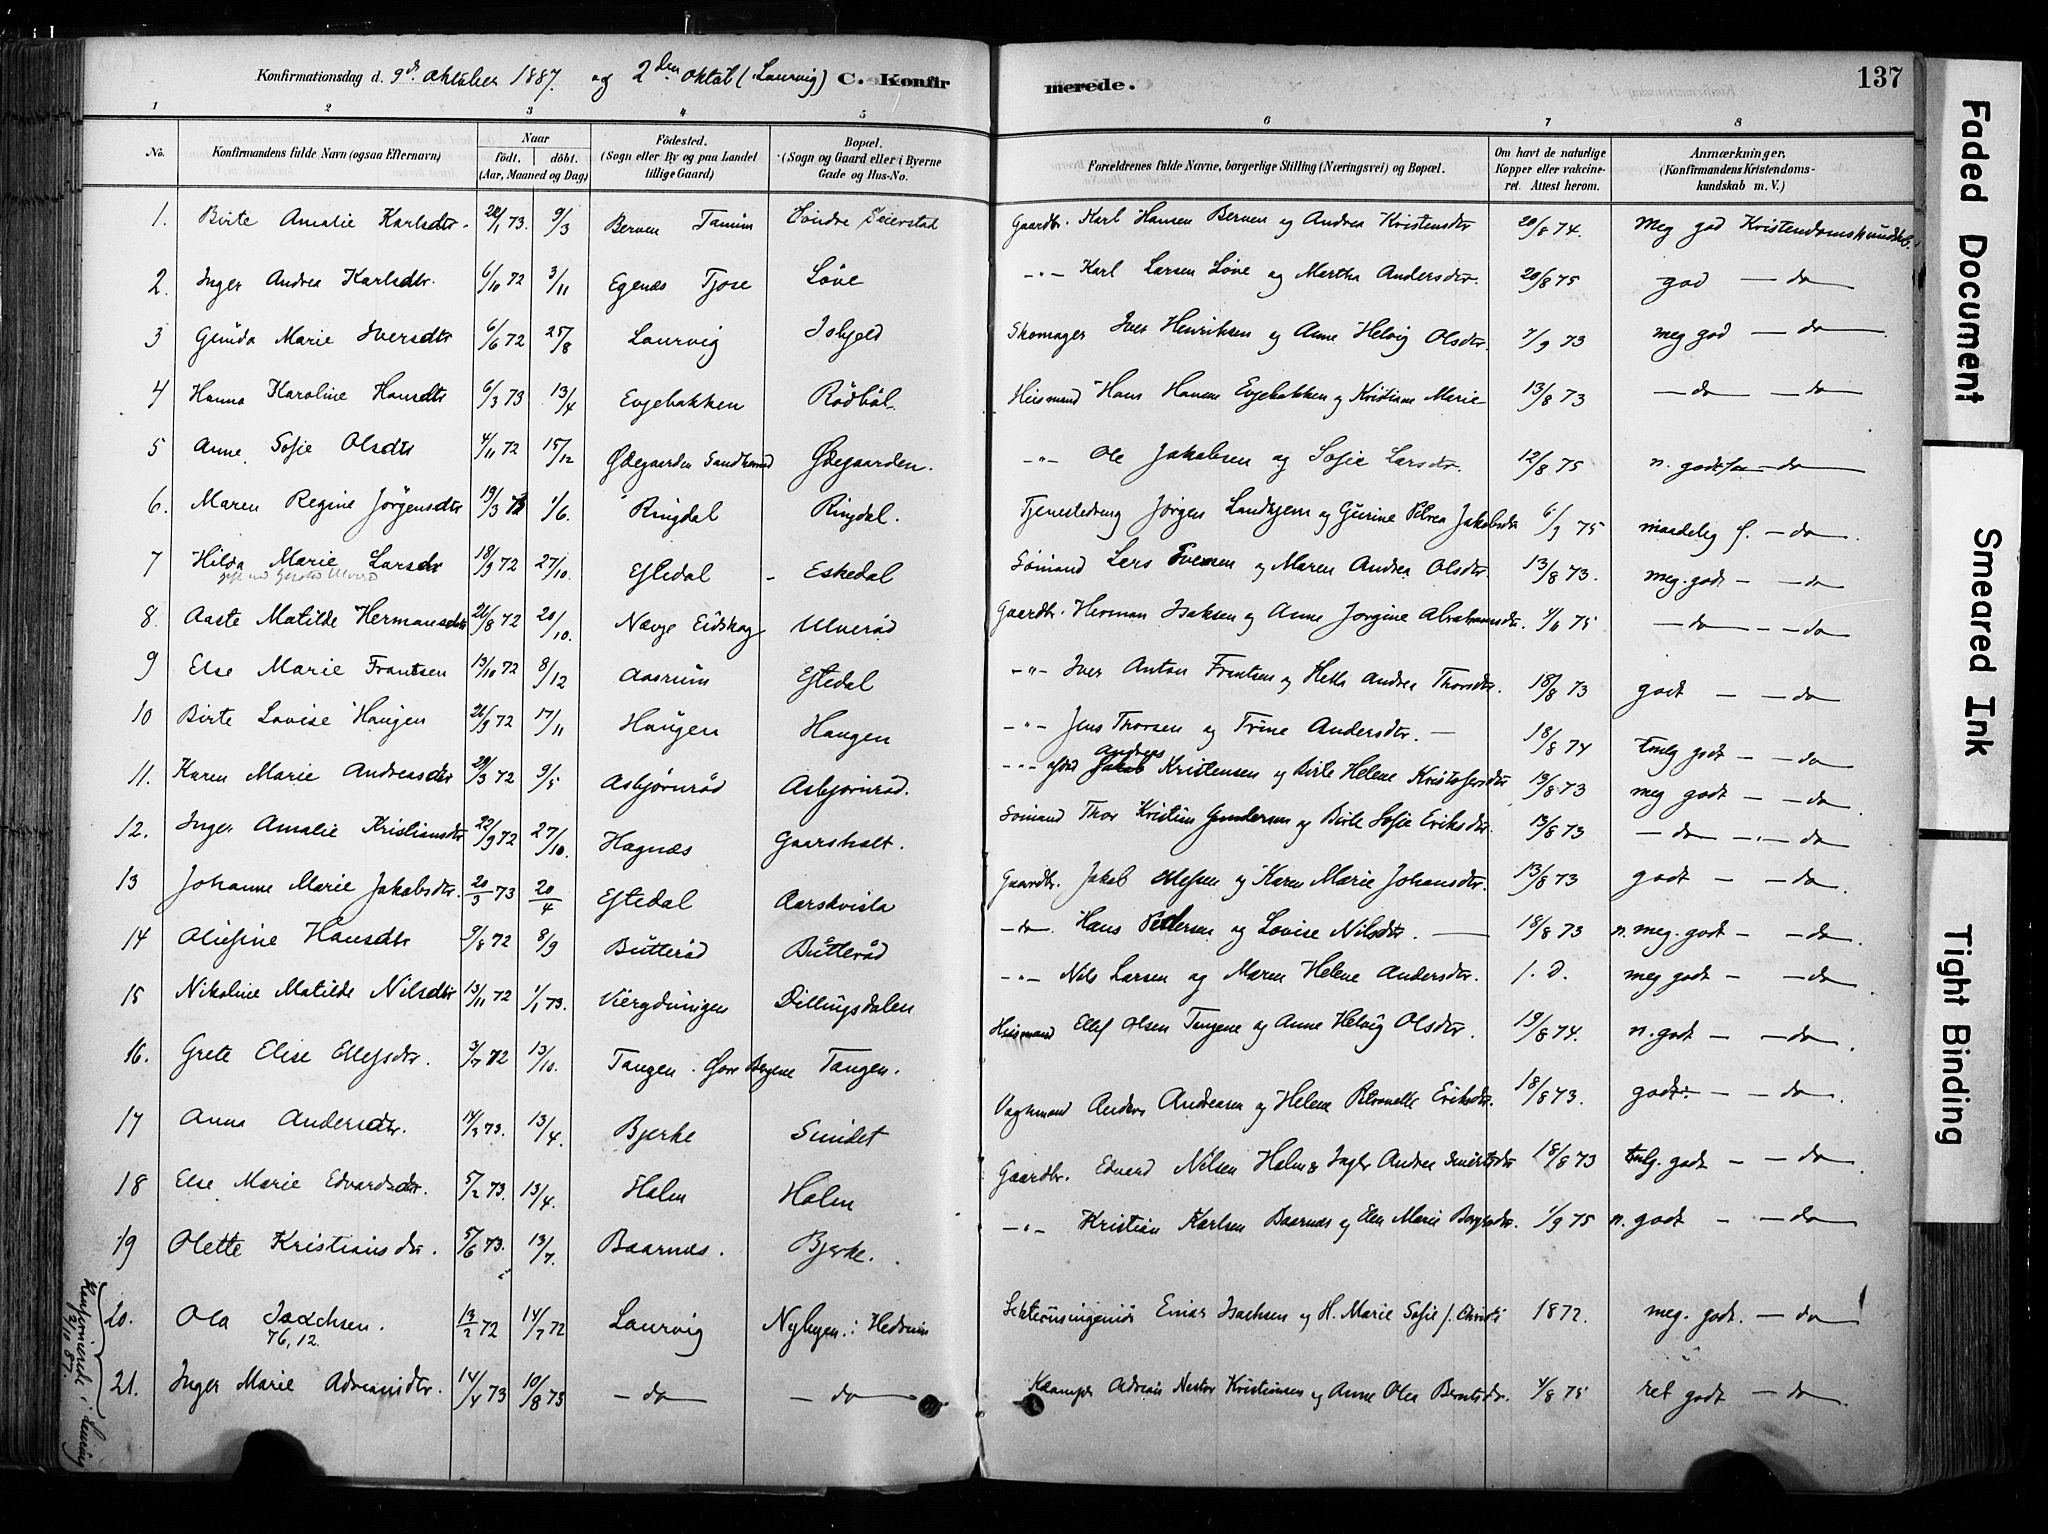 Konfirmationsdag d. 9de Oktober 1887. og 2den Oktob (Laurvig) C. Konfir merede. 137
1 2 3 4 5 6 7 8
No. Konfirmandens fulde Navn (ogsaa Efternavn) Naar födt. döbt. (Aar, Maaned og Dag) Födested. (Sogn eller By og paa Landet tillige Gaard) Bopæl. (Sogn og Gaard eller i Byerne Gade og Hus-No. Forældrenes fulde Navne, borgerlige Stilling (Næringsvei) og Bopæl. Om havt de naturlige Kopper eller vakcineret. Attest herom. Anmærkninger. (Konfirmandens Kristendomskundskab m. V.)
1. Birte Amalie Karlsdtr. 28/1 73. 9/3 Berven Tanum Söndre Seierstad Gaardbr. Karl Hansen Berven og Andrea Kristensdtr 20/8 74. Meg god Kristendomskundskb.
2. Inger Andrea Karlsdtr. 6/10 72 3/11 Egenæs Tjose Löve -"- Karl Larsen Löve og Martha Andersdtr. 20/8 75 god - do
3 Gunda Marie Iversdtr 6/6 72 25/8 Laurvig Skomager Iver Henriksen og Anne Helvig Olsdtr. 7/9 73 meg god - do
4 Hanna Karoline Hansdtr 6/3 73 13/4 Evjebakken Rödböl. Husmand Hans Hansen Evjebakken og Kristiane Marie 13/8 73 - do - do
5 Anne Sofie Olsdtr 4/11 72 15/12 Ødegaarden Ødegaarden. -"- Ole Jakobsen og Sofie Larsdtr. 12/8 75 - do
6. Maren Regine Jörgensdtr 19/3 73 1/6. Ringdal Ringdal. Tjenestedreng Jörgen og Gurine Petrea Jakobsdtr 6/9 75 maadelig - do
7 Hilda Marie Larsdtr 18/9 72 27/10. Eftedal - Eskedal Sömand Lars Evensen og Maren Andrea Olsdtr. 13/8 73. meg. godt - - do
8. Aaste Matilde Hermansdtr 26/8 72 20/10. Nævge Eidskog Ulveröd Gaardbr. Herman Isaksen og Anne Jorgine Abrahamsdtr. 4/11 75 - do - - do
9 Else Marie Frantsen 13/10 72 8/12 Aasrum Eftedal -"- Iver Anton Frantsen og Andrea Thorsdtr. 18/8 73 godt - - do
10 Birte Lovise Haugen 26/9 72 17/11 Haugen Haugen -"- Jens Thorsen og Trine Andersdtr. - 18/8 74 tmlg godt - - do
11. Karen Marie Andreasdtr 29/3 72 9/5 Asbjörnröd Asbjörnröd. -"- Andreas Kristensen og Birte Helene Kristofersdtr 13/8 73 meg godt - - do
12. Inger Amalie Kristiansdtr 22/9 72 27/10. Hagnæs Gaarsholt. Sömand Thor Kristian Gundersen og Birte Sofie Eriksdtr. 13/8 73 - do - - do
13 Johanne Marie Jakobsdtr. 20/3 73 20/4 Eftedal Aarskvisla Gaardbr. Jakob og Karen Marie Johansdtr. 13/8 73 godt - - do
14 Oliefine Hansdtr 9/8 72 8/9 Butteröd Butteröd -do- Hans Pedersen og Lovise Nilsdtr. - 18/8 73 n. meg. godt - - do.
15 Nikoline Matilde Nilsdtr 13/11 72 1/1 73. Dillingsdalen -"- Nils Larsen og Maren Helene Andersdtr. meg godt - - do
16. Grete Elise Ellefsdtr. 3/7 72 13/10. Tangen. Tangen. Husmand Ellef Olsen Tangene og Anne Helvig Olsdtr. 19/8 74. n. godt - - do.
17 Anna Andersdtr. 14/2 73. 13/4. Bjerke Sundet Anders Andreasen og Helene Petronelle Eriksdtr. 18/8 73. godt - - do.
18 Else Marie Edvardsdtr. 5/2 73. 13/4. Holm Holm Gaardbr. Edvard Nilsen Holm og Inger Andrea 18/8 73 tmlg. godt - - do
19 Olette Kristiansdtr. 5/6 73. 13/7. Baarnæs. Bjerke. -"- Kristian Karlsen Baarnæs og Elen Marie 1/9 75 n. godt - - do
20. Ola Isachsen. 13/2 72 14/7 72 Laurvig Nybyen i Hedrum Einar Isachsen og H. Marie Sofie f. Christi 1872. meg. godt. - do
76, 12.
21. Inger Marie Adriansdtr. 14/4 73 10/8 73 - do - do Adrian Nestor Kristiansen og Anne Olea Berntsdtr. 4/8 75 ret godt - do
Konfirmerede i Laurvig 2/10 87.
Faded Document
Smeared Ink
Tight Binding